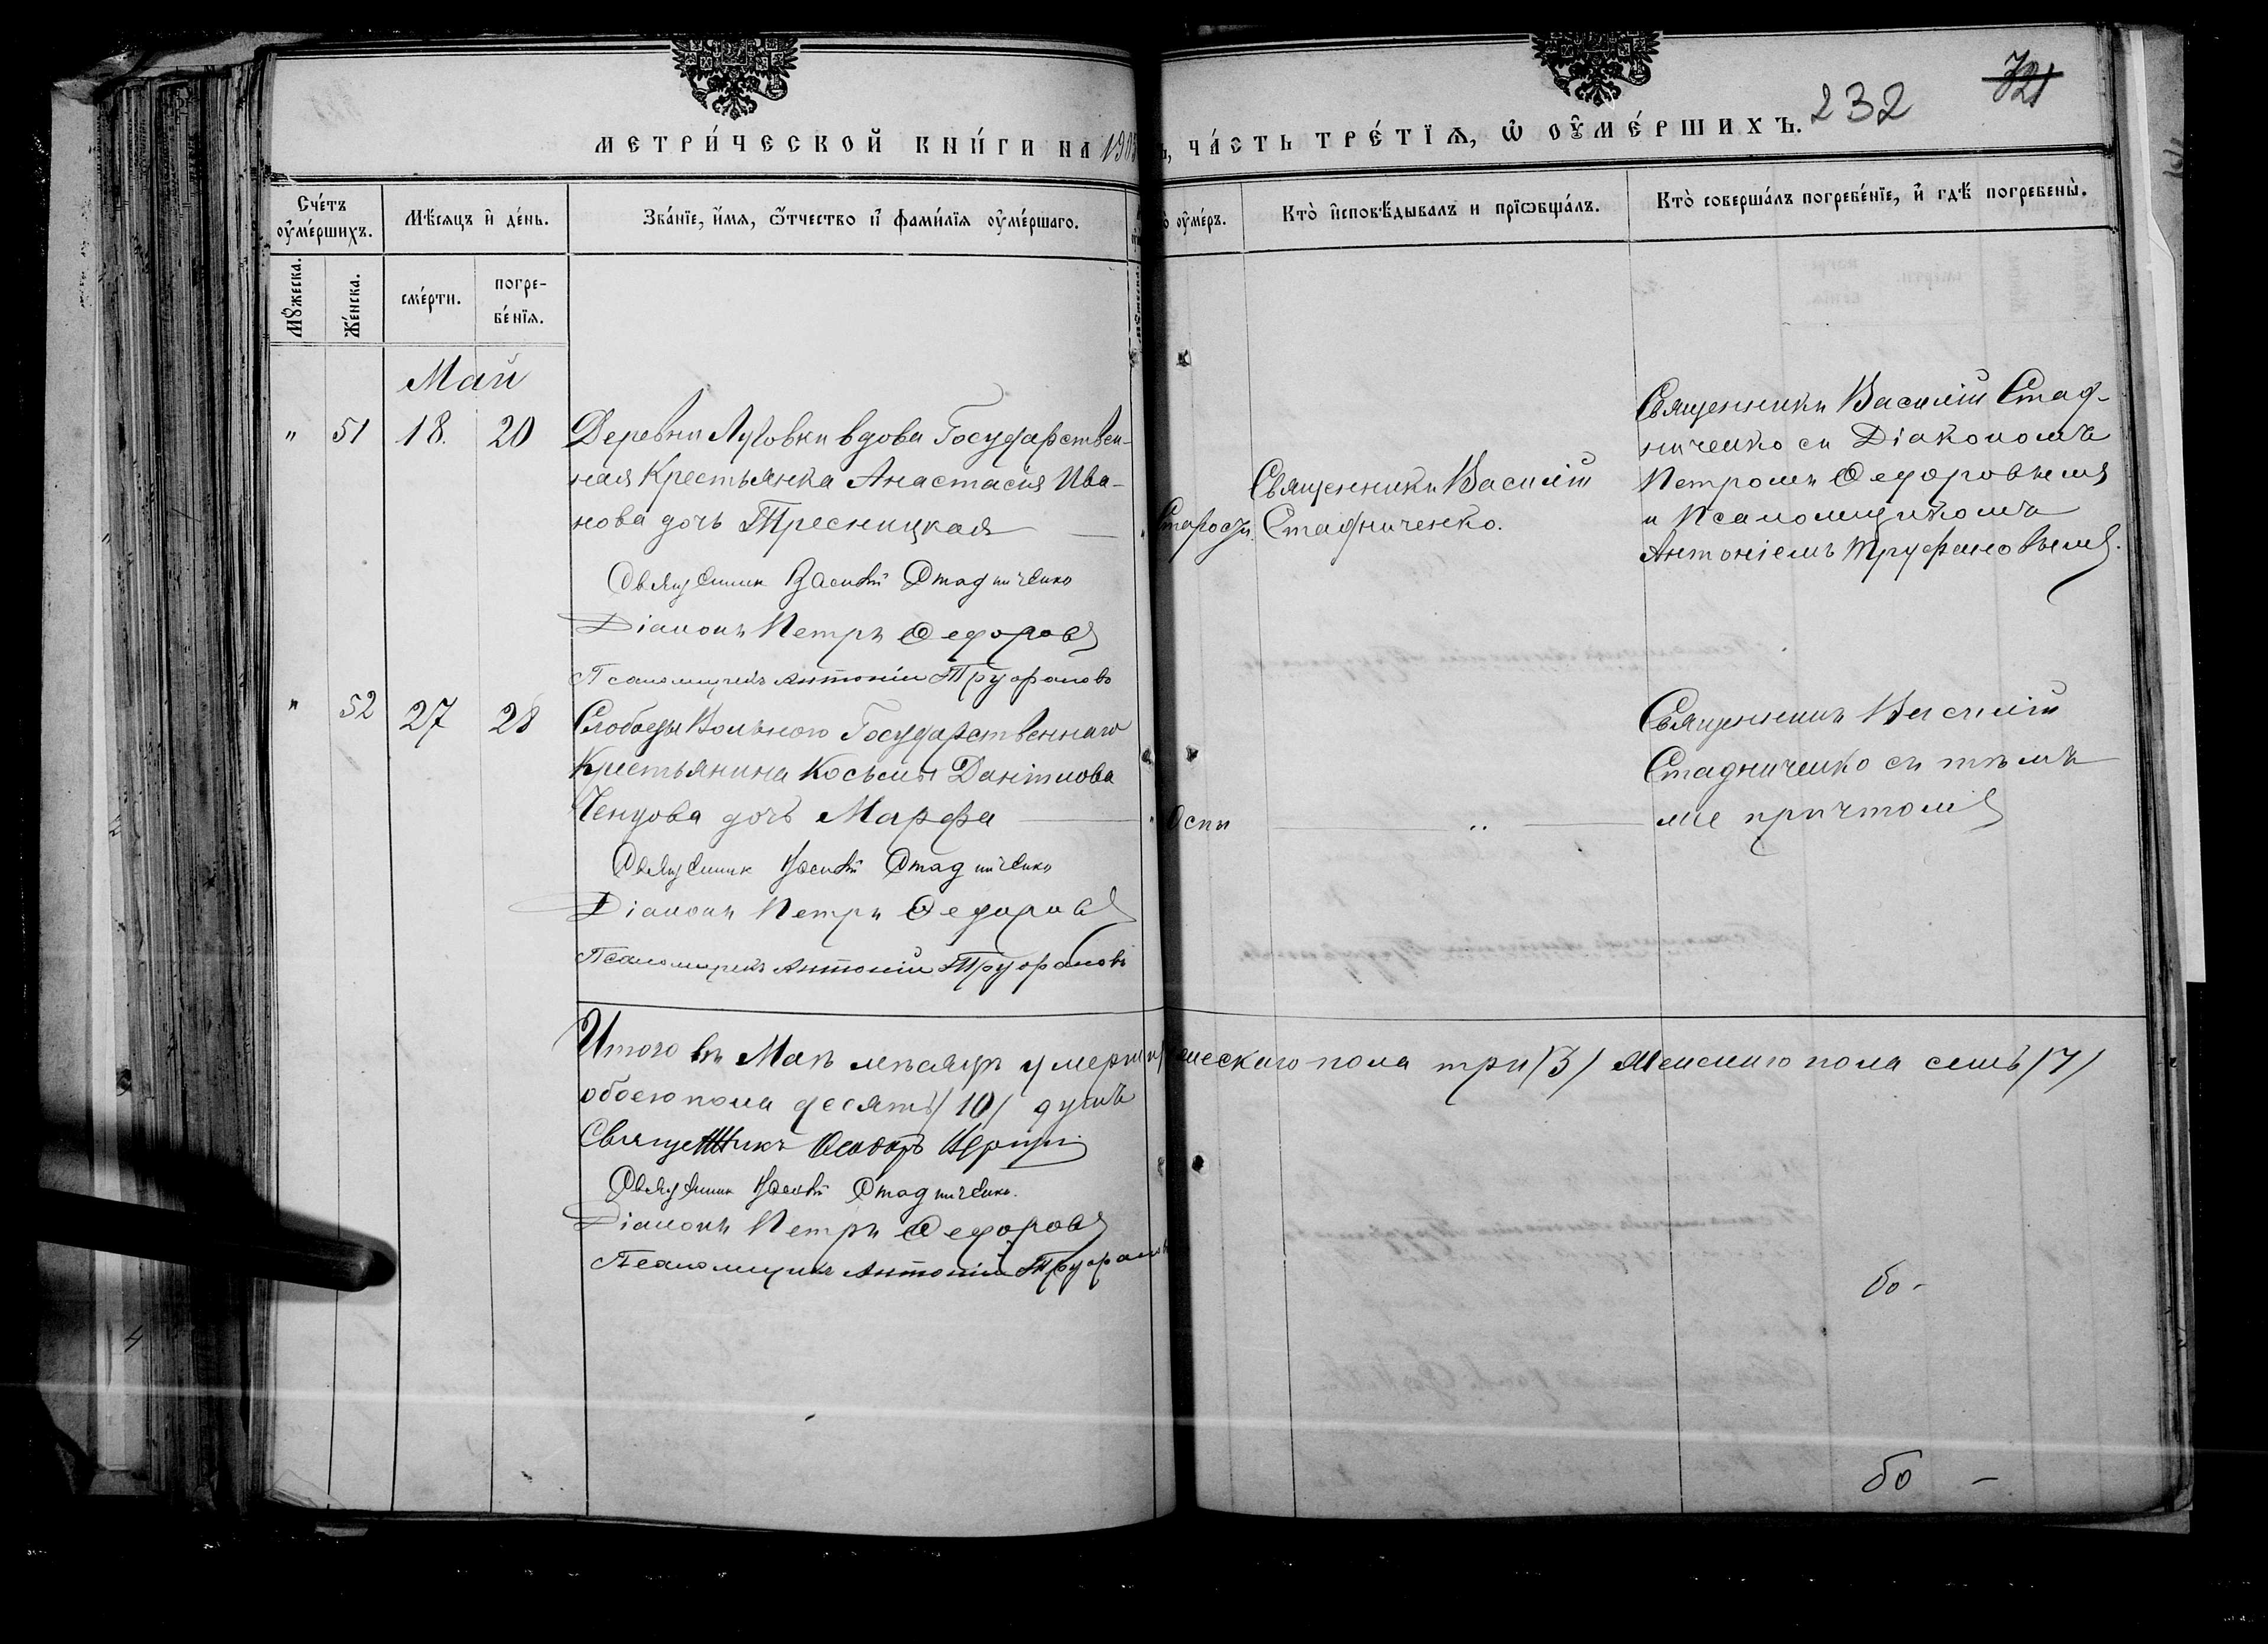 232
721
МЕТРИ́ЧЕСКОЙ КНИ́ГИ НА 190
ЧА́СТЬ ТРЕ́ТЇѦ, Ѡ҆ ОУ҆МЕ́РШИХЪ.
Сче́тъ оу҆ме́ршихъ.
Мѣ́сяцъ и҆ де́нь.
Зва́нїе, и҆́мя, ѻ҆́тчество и҆ фами́лїя оу҆ме́ршаго.
оу҆ме́ръ.
Кто̀ и҆сповѣ́дывалъ и прїѡбща́лъ.
Кто̀ соверша́лъ погребе́нїе, и҆ гдѣ̀ погребены̀.
Мꙋжеска.
Же́нска.
сме́рти.
погре-
бе́нїя.
Май
" 51 18. 20
Деревни Луговки вдова Государствен-
ная Крестьянка Анастасія Ива-
нова дочь Тресницкая
Старости
Священникъ Василій
Стадниченко.
Священникъ Василій Стад-
ниченко съ Діакономъ
Петромъ Ѳедоровымъ
и Псаломщикомъ
Антоніемъ Труфановымъ.
Священник Василій Стадниченко
Діаконъ Петръ Ѳедоровъ
Псаломщикъ Антоній Труфановъ
" 52 27 28
Слободы Вольного Государственнаго
Крестьянина Косьмы Даніилова
Ченцова дочь Марфа
Оспы
"
Священникъ Василій
Стадниченко съ тѣмъ
же причтомъ
Священник Василій Стадниченко
Діаконъ Петръ Ѳедоровъ
Псаломщикъ Антоній Труфановъ
Итого въ Маѣ мѣсяцѣ умерло мужескаго пола три /3/ женскаго пола семь /7/
обоего пола десять /10/ душъ
Священникъ Ѳеодоръ
Священник Василій Стадниченко.
Діаконъ Петръ Ѳедоровъ
Псаломщикъ Антоній Труфановъ
бо -
бо -